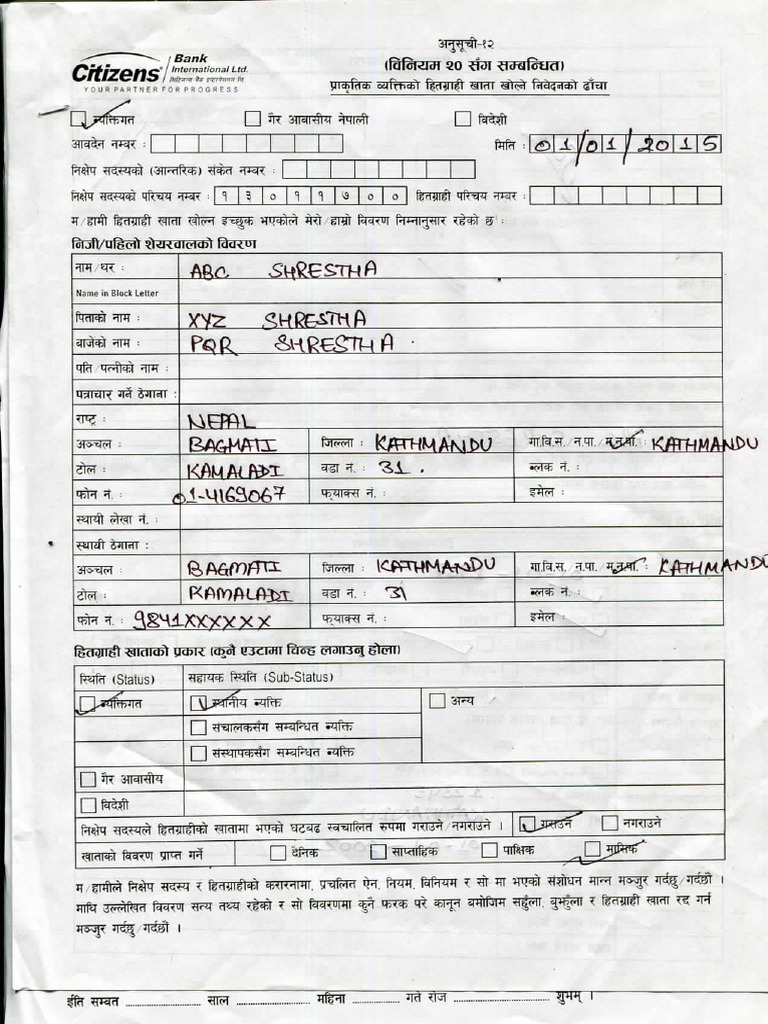 अनुसूची-१२
Citizens Bank International Ltd.
सिटिजन्स बैंक इन्टरनेशनल लि.
YOUR PARTNER FOR PROGRESS
(विनियम २० सँग सम्बन्धित)
प्राकृतिक व्यक्तिको हितग्राही खाता खोल्ने निवेदनको ढाँचा
व्यक्तिगत गैर आवासीय नेपाली विदेशी
आवदेन नम्बर : मिति : 01/01/2015
निक्षेप सदस्यको (आन्तरिक) संकेत नम्बर :
निक्षेप सदस्यको परिचय नम्बर : १ ३ ० १ १ ७ ० ० हितग्राही परिचय नम्बर :
म/हामी हितग्राही खाता खोल्न इच्छुक भएकोले मेरो/हाम्रो विवरण निम्नानुसार रहेको छ :
निजी/पहिलो शेयरवालको विवरण
नाम/थर : ABC SHRESTHA
Name in Block Letter
पिताको नाम : XYZ SHRESTHA
बाजेको नाम : PQR SHRESTHA
पति/पत्नीको नाम :
पत्राचार गर्ने ठेगाना :
राष्ट्र : NEPAL
अञ्चल : BAGMATI जिल्ला : KATHMANDU गा.वि.स./न.पा./म.न.पा. : KATHMANDU
टोल : KAMALADI वडा नं. : 31. ब्लक नं. :
फोन नं. : 01-4169067 फ्याक्स नं. : इमेल :
स्थायी लेखा नं. :
स्थायी ठेगाना :
अञ्चल : BAGMATI जिल्ला : KATHMANDU गा.वि.स./न.पा./म.न.पा. : KATHMANDU
टोल : KAMALADI वडा नं. : 31 ब्लक नं. :
फोन नं. : 9841XXXXXX फ्याक्स नं. : इमेल :
हितग्राही खाताको प्रकार (कुनै एउटामा चिन्ह लगाउनु होला)
स्थिति (Status) सहायक स्थिति (Sub-Status)
व्यक्तिगत स्थानीय व्यक्ति अन्य
संचालकसँग सम्बन्धित व्यक्ति
संस्थापकसँग सम्बन्धित व्यक्ति
गैर आवासीय
विदेशी
निक्षेप सदस्यले हितग्राहीको खातामा भएको घटबढ स्वचालित रुपमा गराउने/नगराउने । गराउने नगराउने
खाताको विवरण प्राप्त गर्ने दैनिक साप्ताहिक पाक्षिक मासिक
म/हामीले निक्षेप सदस्य र हितग्राहीको करारनामा, प्रचलित ऐन, नियम, विनियम र सो मा भएको संशोधन मान्न मञ्जुर गर्दछु/गर्दछौं ।
माथि उल्लेखित विवरण सत्य तथ्य रहेको र सो विवरणमा कुनै फरक परे कानून बमोजिम सहुँला, बुझौंला र हितग्राही खाता रद्द गर्न
मञ्जुर गर्दछु/गर्दछौं ।
ईति सम्वत ........ साल ........ महिना ........ गते रोज ........ शुभम् ।